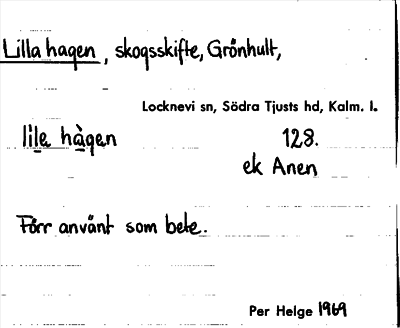 Lilla hagen, skogsskifte, Grönhult,
Locknevi sn, Södra Tjusts hd, Kalm. l.
lile hàgen 128.
ek Anen
Förr använt som bete.
Per Helge 1969